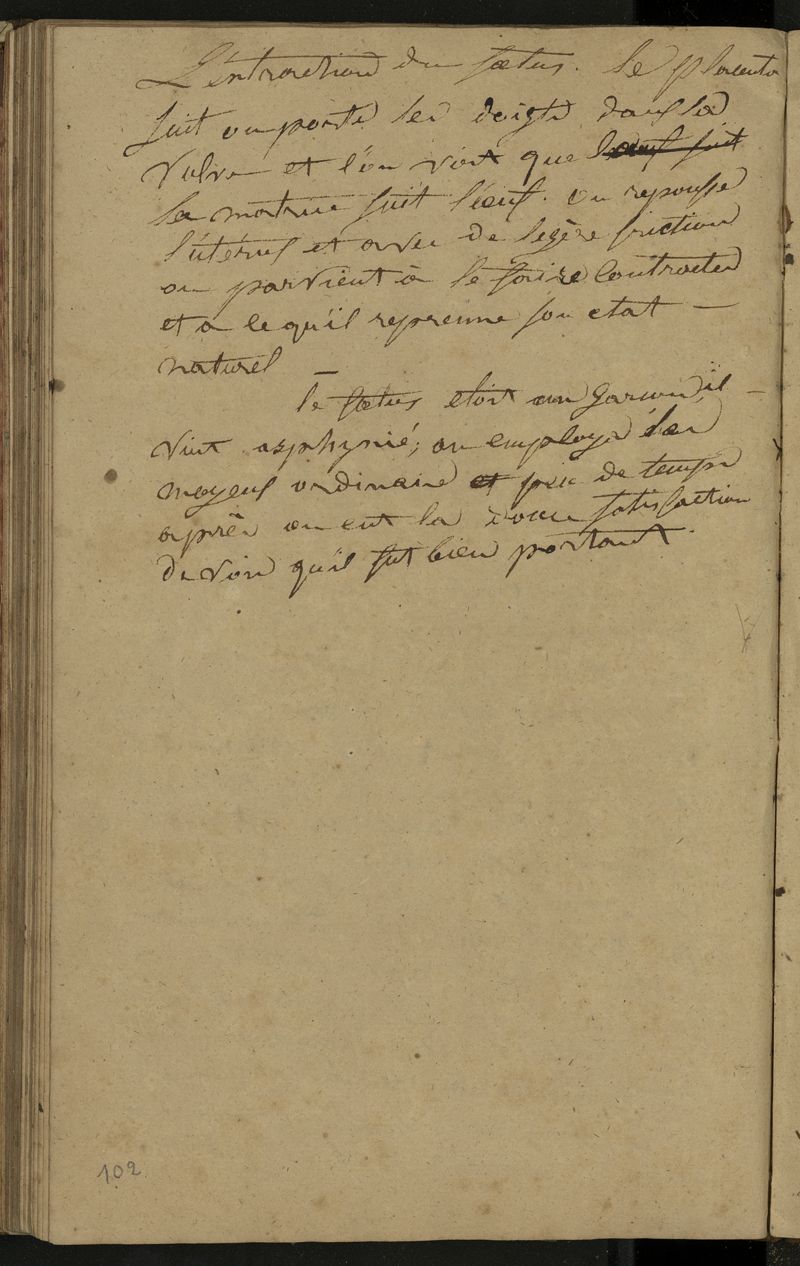 L'extraction du fœtus. le placenta
suit on porte les doigts dans la
vulve et l'on voit que l'œuf suit
la matrice suit l'œuf. on repousse
l'utérus et avec de legère friction
on parvient à le faire contracter
et a ce qu'il reprenne son etat —
naturel —
le fœtus etoit un garcon, il —
vint asphyxié, on employa les
moyens ordinaire et peu de temps
après on eut la douce satisfaction
de voir qu'il fut bien portant.
102